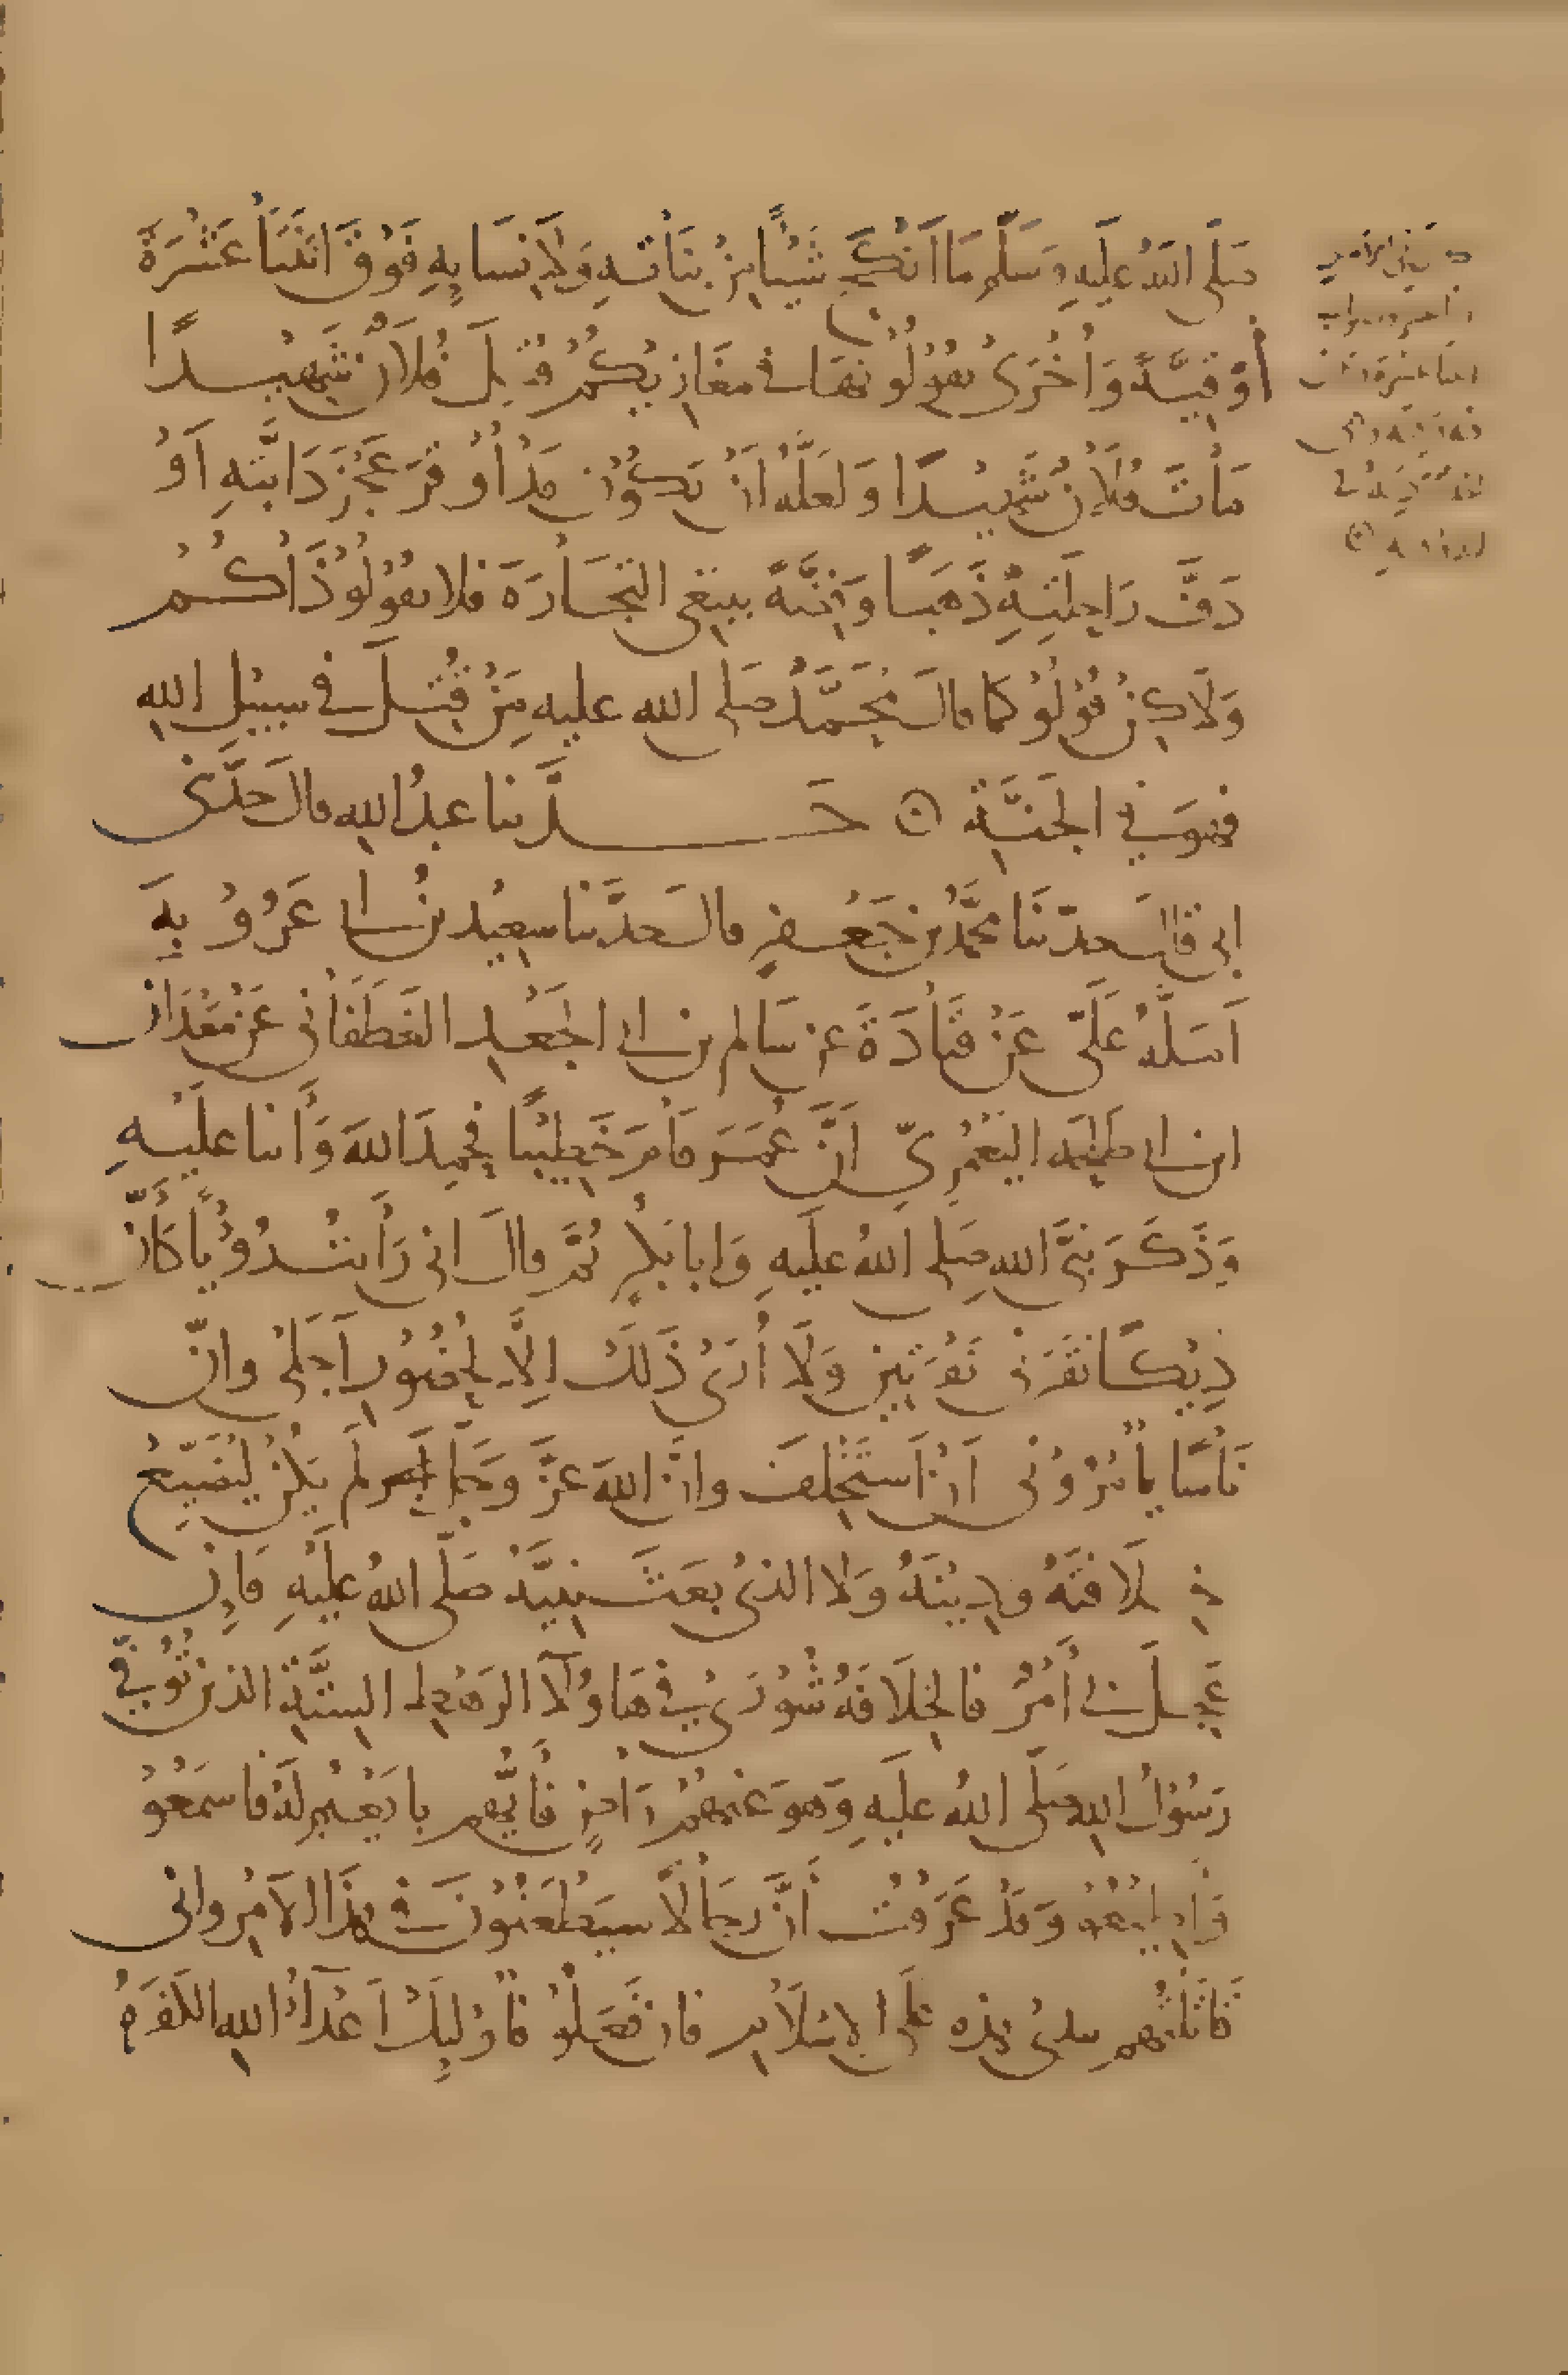 صَلَّى اللهُ عَلَيهِ وَسَلَّم مَا اَنْكَحَ شَيْئًا مِنْ بَنَاتِهِ وَلَا نِسَايِهِ فَوْقَ اثنَتَا عَشْرَةَ
أُوْقِيَّةً وَأُخْرَى تقُوْلُوْنَهَا في مغَازِيْكُمْ قُتِلَ فُلَانٌ شَهِيْدًا
مَاتَ فُلَانٌ شَهِيْدًا وَلَعَلَّهُ اَنْ يَكُوْن قَدْ أَوْقَرَ عَجُزَ دَابَّتِهِ اَوْ
دَفَّ رَاحِلَتِهِ ذَهَبًا وَفِضَّةً يبتغى التِّجَارَةَ فلا تقُوْلُوْ ذَاكُمْ
وَلَاكِنْ قُوْلُوْ كما قالَ مُحَمَّدٌ صَلى الله عليه مَنْ قُتِلَ في سبيْل اللهِ
فهوَ في الجَنَّةِ حَدَّثنا عبدُ اللهِ قالَ حَدَّثنى
ابى قالَ حدّثنَا محمّدُ بن جَعْفرٍ قالَ حدَّثنا سعِيْد بنُ ابى عَرُوْبةَ
اَمَلَّهُ عَلَىّ عَنْ قَتَادَةَ عن سَالم بن ابى الجَعْدِ الغَطَفَانى عَنْ مَعْدَان
ابن ابى طلحَه اليَعْمُرِىِّ اَنَّ عُمَرَ قَامَ خَطِيْبًا فحمِدَ اللهَ وَأَثنا عليْهِ
وَذَكَرَ نبىَّ الله صَلى اللهُ علَيهِ وَابا بَكْرٍ ثمَّ قالَ انى رَأَيتُ رُوْيًا كَأَنَّ
دِيْكًا نَقَرَنى نَقْرَتَين وَلَا أُرَىْ ذَلكَ الَّا لِحُضُوْرِ اَجَلىْ وانّ
نَاسًا يأْمُرُوْنى اَنْ اَستَخْلِفَ وانَّ اللهَ عَزَّ وَجَلَّ لَم يَكُنْ لِيُضَيِّعَ
خِلَافتَهُ ودِيْنَهُ وَلا الذىْ بعَثَ بِهِ نَبِيَّهُ صَلَّى اللهُ عَلَيْهِ فَاِن
عَجِلَ بى أَمْرٌ فالخِلَافَةُ شُوْرَىْ في هَاوُلَآ الرَهْطِ السِتَّةِ الذين تُوُفّيَ
رَسُوْلُ اللهِ صَلَّى اللهُ علَيهِ وَهوَ عَنهُمْ رَاضٍ فَأيُّهم بايَعْتُم لَهُ فاسمَعُوْ
وَاطِيْعُوْ وَقَدْ عَرَفْتُ أَنَّ رِجَالًا سيَطْعَنُوْنَ في هذَا الأَمْرِ وانى
قَاتَلْتُهم بيدىْ هذه عَلَى الإسْلَامِ فان فَعَلُوْ فأُوْلَيِكَ اَعْدَآءُ اللهِ الكَفَرَةُ